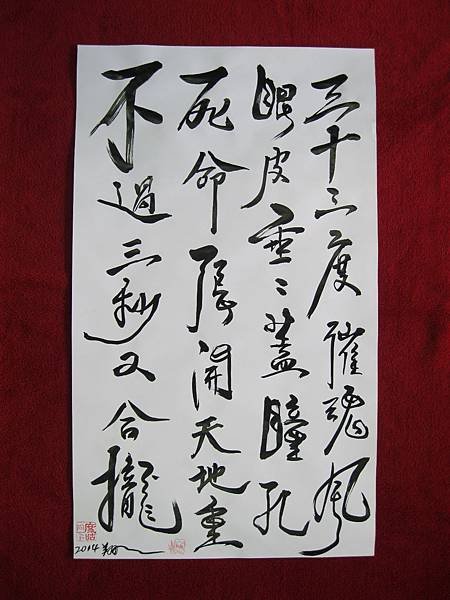 三十三度催魂風
眼皮垂々蓋瞳孔
死命張開天地重
不過三秒又合攏
2014